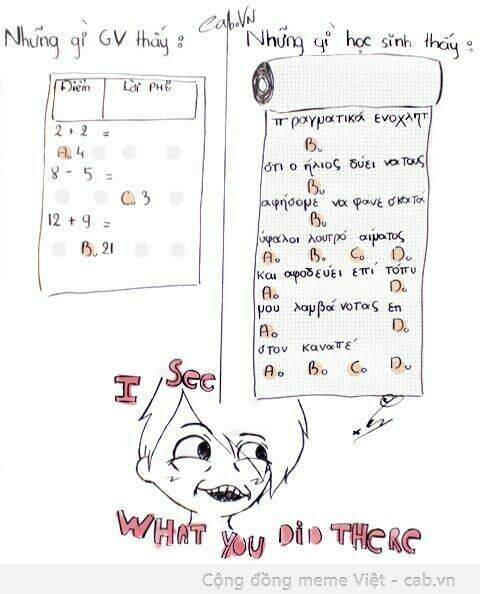 Cab.VN
Những gì GV thấy :
Điểm
Lời PHÊ
2 + 2 =
A. 4
8 - 5 =
C. 3
12 + 9 =
B. 21
Những gì học sinh thấy :
πραγματικά ενοχλητ
B.
ότι ο ήλιος δύει να τους
B.
αφήσομε να φανε σκατά
B.
ύφαλοι λουτρό αίματος
A. B. C. D.
και αφοδεύει επί τόπυ
A. D.
μου λαμβάνοτας επ
A. D.
στον καναπέ
A. B. C. D.
I SEE
WHAT YOU DID THERE
Cộng đồng meme Việt - cab.vn